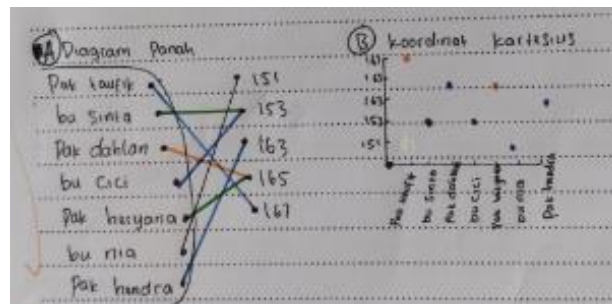 A Diagram Panah
Pak taufik
bu sinta
Pak dahlan
bu cici
Pak haryana
bu nia
Pak hendra
151
153
163
165
167
B koordinat kartesius
167
165
163
153
151
Pak taufik
bu sinta
Pak dahlan
bu cici
Pak haryana
bu nia
Pak hendra